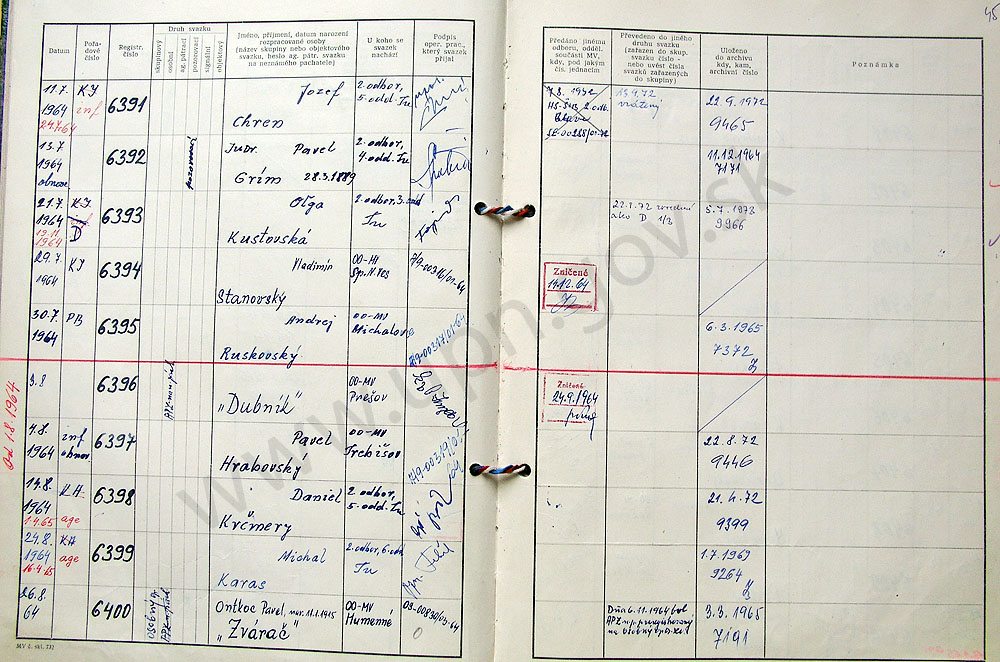 45
Datum
Pořadové číslo
Registr. číslo
Druh svazku
skupinový
osobní
ag. pátrací
pozorovací
signální
objektový
Jméno, příjmení, datum narození
rozpracované osoby
(název skupiny nebo objektového
svazku, heslo ag. pátr. svazku
na neznámého pachatele)
U koho se
svazek
nachází
Podpis
oper. prac.,
který svazek
přijal
Předáno jinému
odboru, odděl.
součásti MV,
kdy, pod jakým
čís. jednacím
Převedeno do jiného
druhu svazku
(zařazen do skup.
svazku číslo -
nebo uvést čísla
svazků zařazených
do skupiny)
Uloženo
do archivu
kdy, kam,
archivní číslo
Poznámka
11.7.
1964
24.7.64
inf
6391
Jozef
Chren
2. odbor,
5. odd. Tu
7.8. 1972
13.9.72
22.9.1972
9465
13.7
1964
obnov.
6392
pozorovací
Judr. Pavel
Grím 28.3.1889
2. odbor,
4. odd. Tu
11.12.1964
7171
21.7.
1964
19.11
1964
D
6393
Oľga
Kusťovská
2. odbor, 3. odd
Tu
22.1.72 zvedený
ako D 1/3
5.7.1973
9966
29.7.
1964
6394
Vladimír
Stanovský
OO-MV
Sp. N. Ves
Zničené
14.12.64
30.7.
1964
PB
6395
Andrej
Ruskovský
OO-MV
Michalovce
6.3.1965
7372
Od 1.8.1964
3.8
6396
„Dubník"
OO-MV
Prešov
Zničené
24.9.1964
4.8.
1964
inf
obnov.
6397
Pavel
Hrabovský
OO-MV
Trebišov
22.8.72
9446
14.8.
1964
1.4.65
age
6398
Daniel
Krčmery
2. odbor,
5. odd. Tu
21.4.72
9399
24.8.
1964
16.4.65
age
6399
Michal
Karas
2. odbor, 6. odd.
Tu
1.7.1969
9264
26.8.
64
6400
osobný
Ontkoc Pavel, nar. 11.1.1945
„Zvárač"
OO-MV
Humenné
Dňa 6.11.1964 bol
3.3.1965
7191
MV č. skl. 732
www.upn.gov.sk